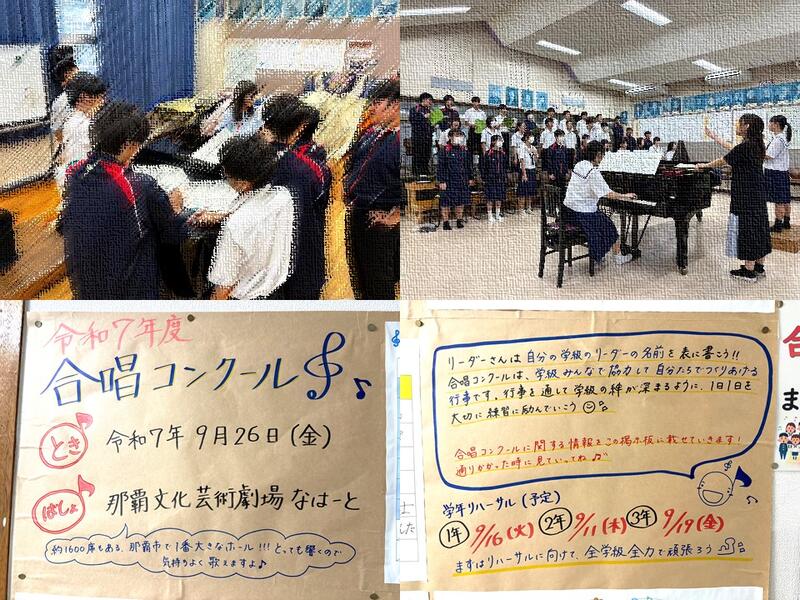 令和7年度
合唱コンクール
とき
令和7年 9月26日(金)
ばしょ
那覇文化芸術劇場 なはーと
約1600席もある、那覇市で1番大きなホール!!! とっても響くので
気持ちよく 歌えますよ♪
リーダーさんは 自分の学級のリーダーの名前を 表に書こう!!
合唱コンクールは、学級みんなで協力して 自分たちでつくりあげる
行事です。行事を通して学級の絆が深まるように、1日1日を
大切に練習に励んでいこう
合唱コンクールに関する情報をこの掲示板に載せていきます!
通りかかった時に見ていってね♪
学年リハーサル (予定)
1年 9/16(火) 2年 9/11(木) 3年 9/19(金)
まずはリハーサルに向けて、全学級 全力で頑張ろう